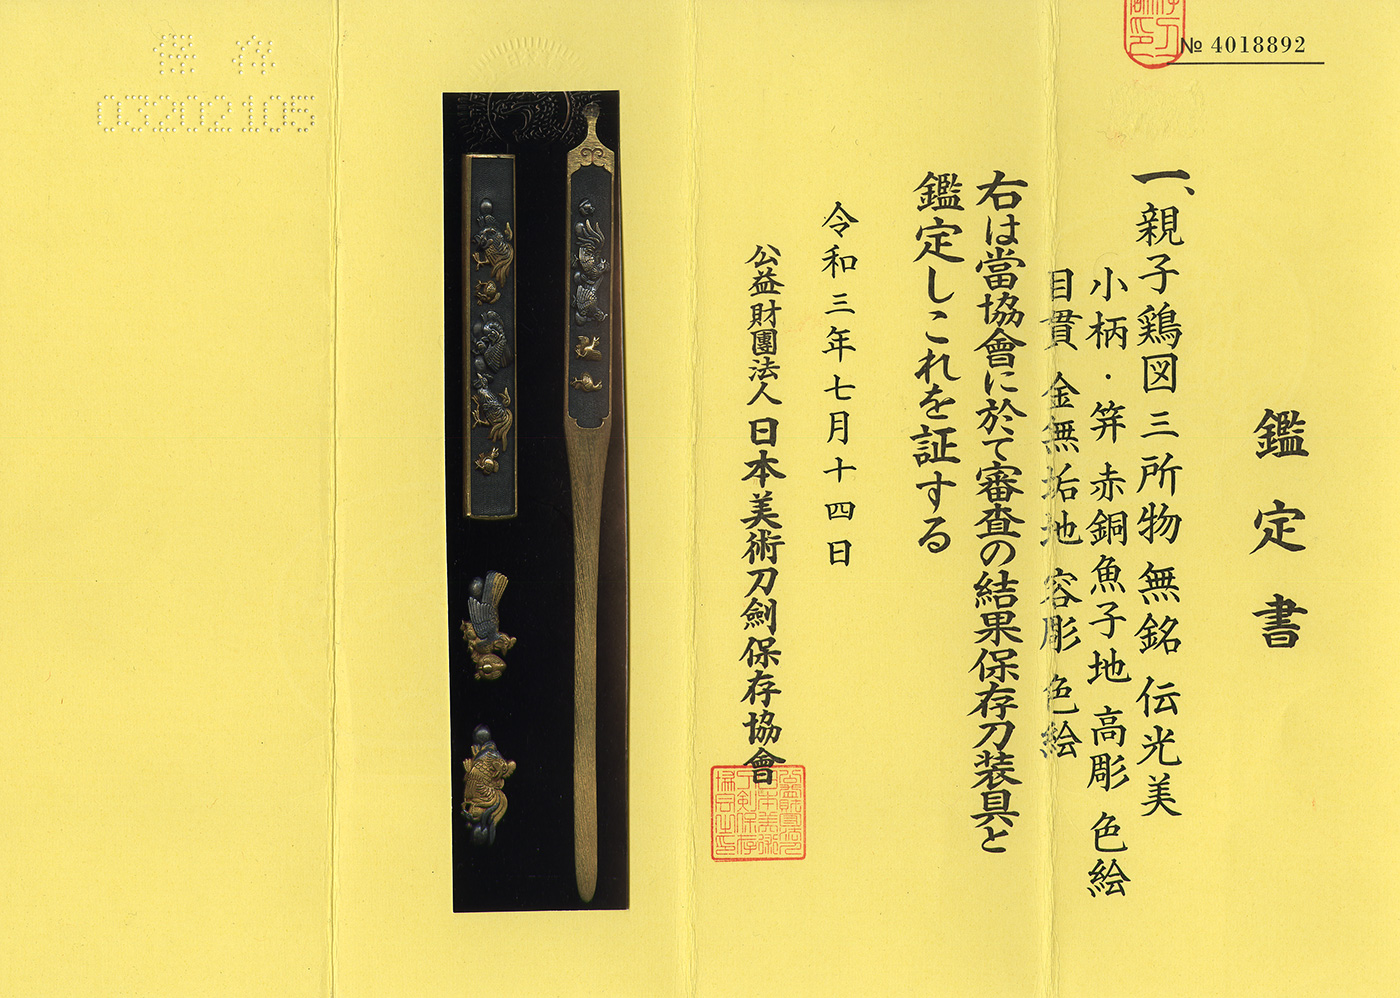 № 4018892
鑑定書
一、親子鶏図三所物 無銘 伝光美
小柄・笄 赤銅魚子地 高彫 色絵
目貫 金無垢地 容彫 色絵
右は當協會に於て審査の結果保存刀装具と
鑑定しこれを証する
令和三年七月十四日
公益財團法人 日本美術刀劍保存協會
保存
03202105